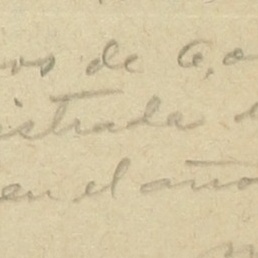 os de 6,0
istrada
en el año